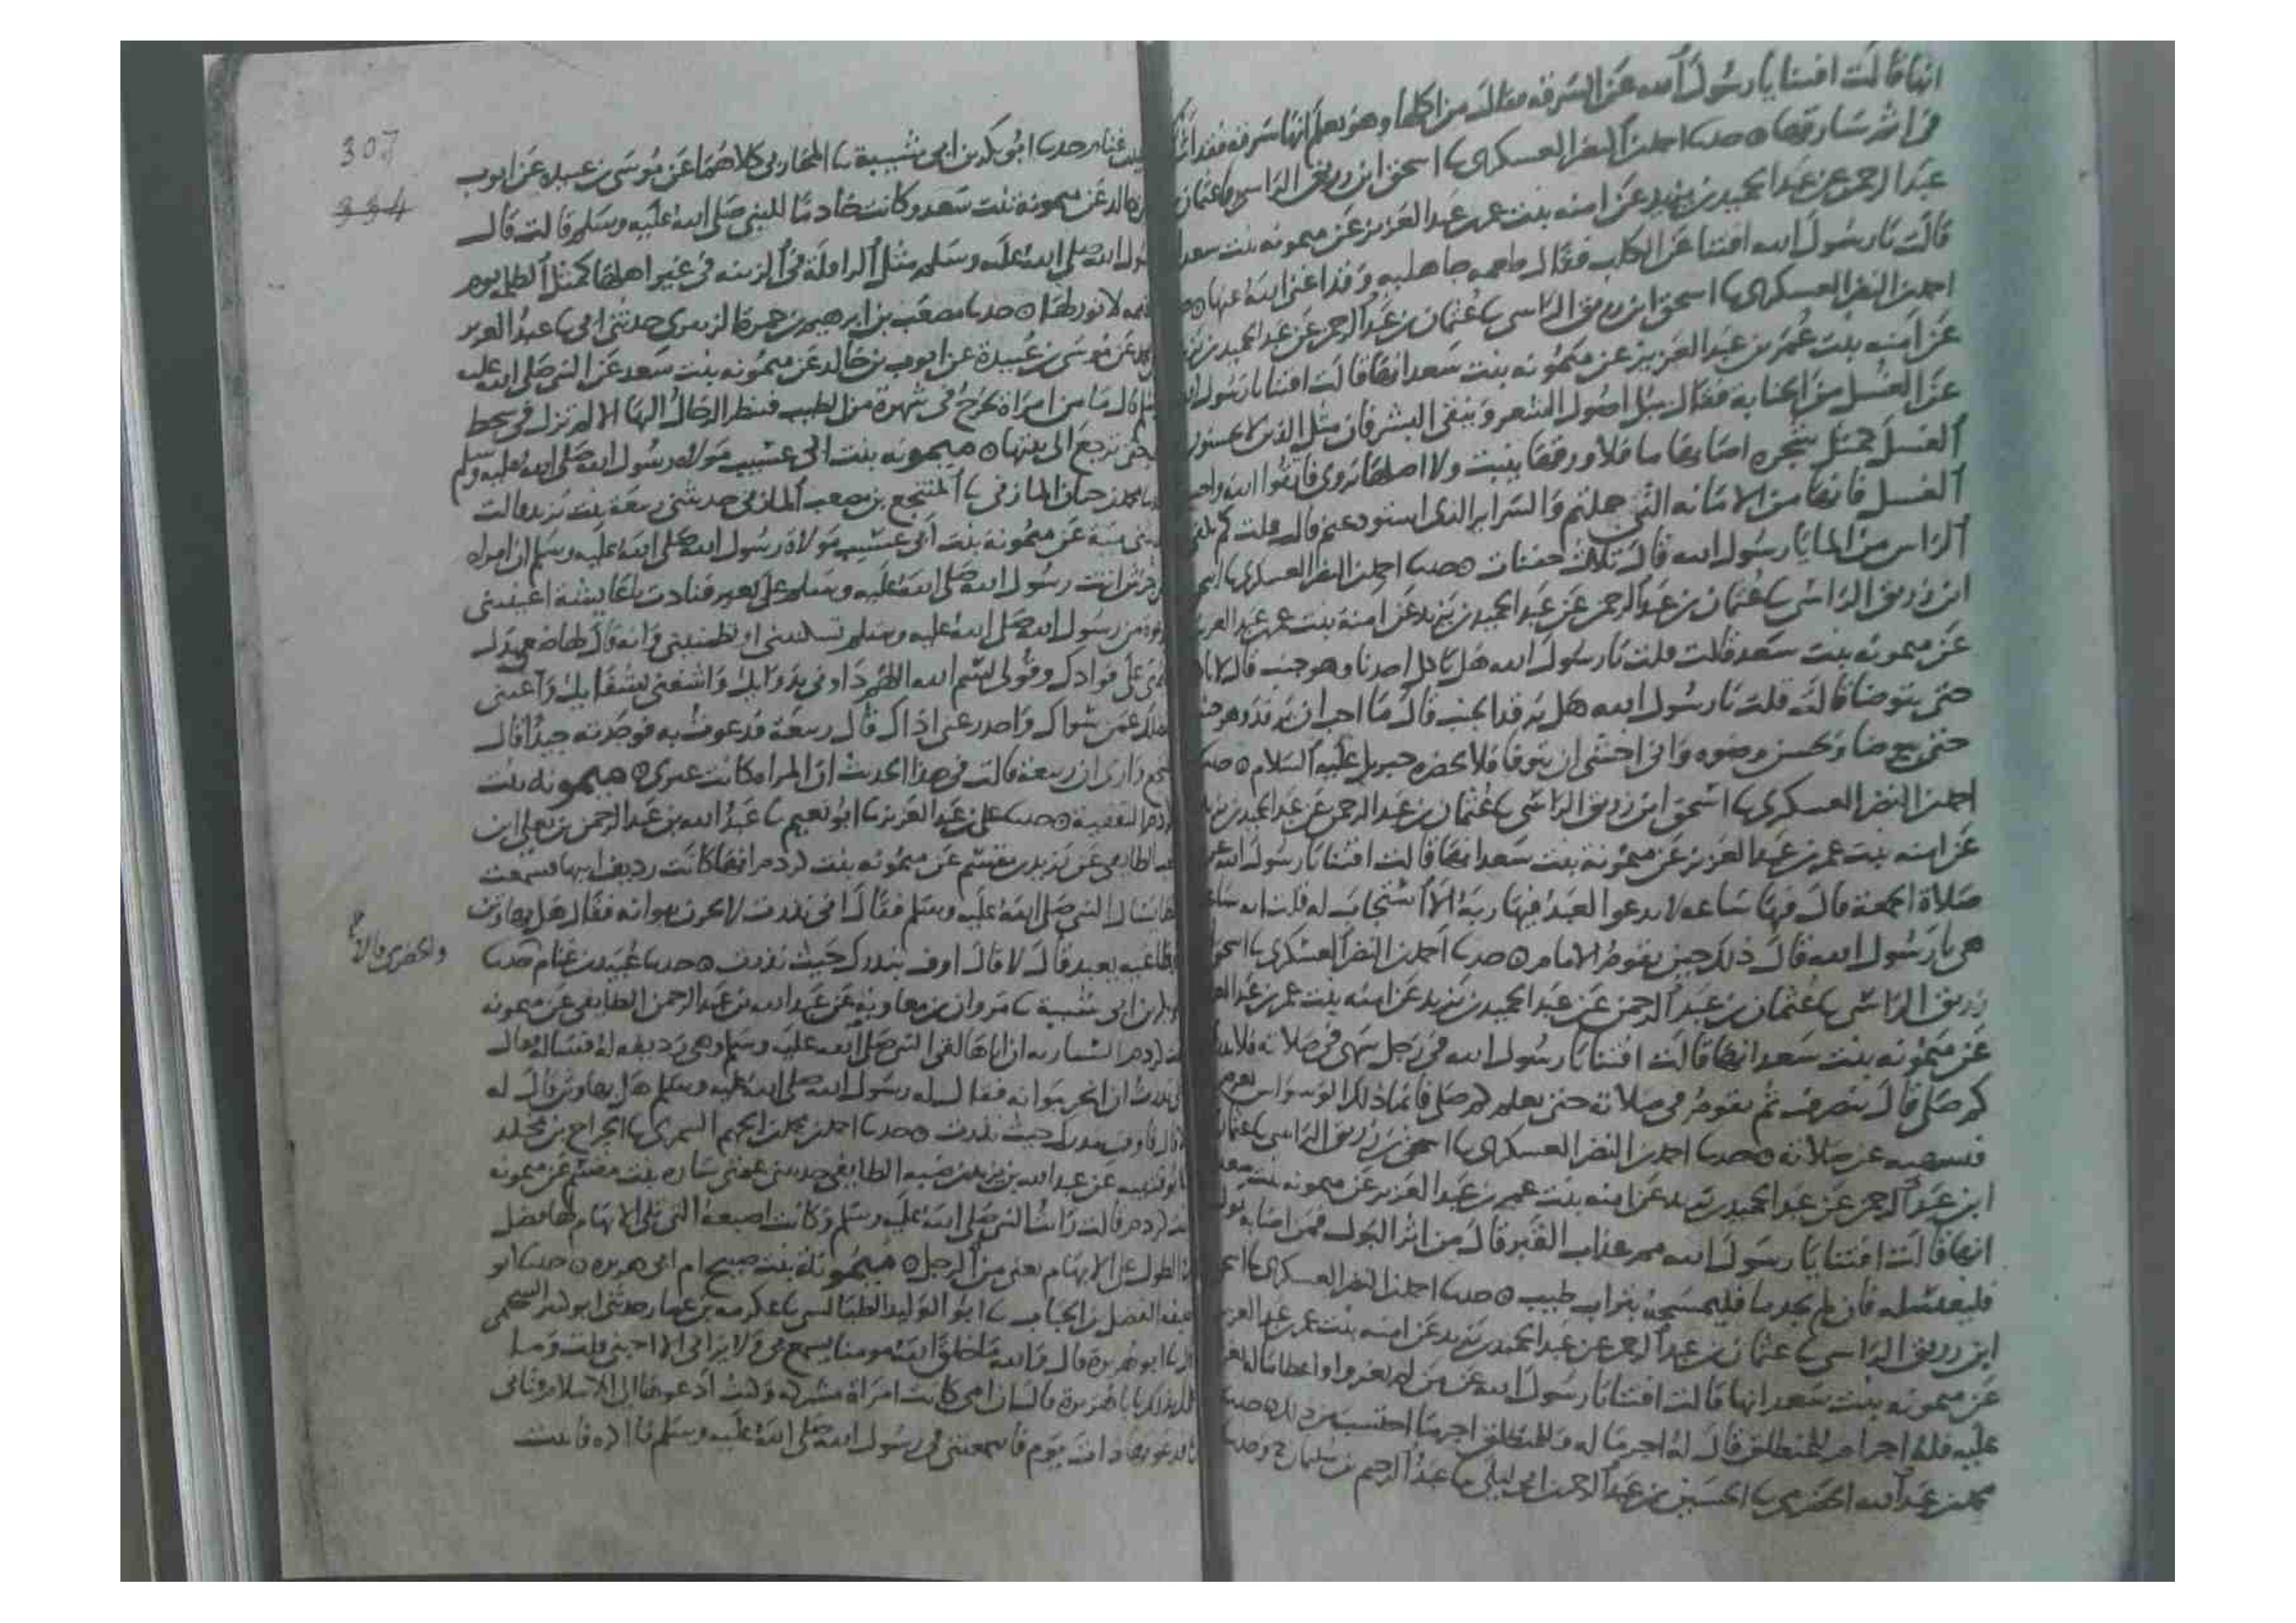 انها قالت افتنا يا رسول الله عن السرقة فقال من اكلها وهو يعلم انها سرقة فقد اشرك
في اثم سارقها حدثنا احمد بن النضر العسكري ثنا اسحق ابن زريق الراسي ثنا عثمان بن
عبد الرحمن عن عبد الحميد بن يزيد عن امنه بنت عمر بن عبد العزيز عن ميمونه بنت سعد
قالت يا رسول الله افتنا عن الكلب فقال طعمه جاهليه وقد اغنى الله عنها
احمد بن النضر العسكري ثنا اسحق ابن زريق الراسي ثنا عثمان بن عبد الرحمن عن عبد الحميد بن يزيد
عن امنه بنت عمر بن عبد العزيز عن ميمونه بنت سعد انها قالت افتنا يا رسول الله
عن الغسل من الجنابة فقال تبل اصول الشعر وتنقي البشر فان مثل الذين لا يحسنون
الغسل كمثل شجره اصابها ما فلا ورقها ينبت ولا اصلها يروى فاتقوا الله واحسنوا
الغسل فانها من الامانه التي حملتم والسراير التي استودعتم قالت قلت كم يكفي
الراس من الما يا رسول الله قال ثلاث حفنات حدثنا احمد بن النضر العسكري ثنا اسحق
ابن زريق الراسي ثنا عثمان بن عبد الرحمن عن عبد الحميد بن يزيد عن امنة بنت عمر بن عبد العزيز
عن ميمونه بنت سعد قالت قلت يا رسول الله هل ياكل احدنا وهو جنب قال لا
حتى يتوضا قالت قلت يا رسول الله هل يرقد الجنب قال ما احب ان يرقد وهو جنب
حتى يتوضا ويحسن وضوه واني اخشى ان يتوفا فلا يحضره جبريل عليه السلام
احمد بن النضر العسكري ثنا اسحق ابن زريق الراسي ثنا عثمان بن عبد الرحمن عن عبد الحميد بن يزيد
عن امنه بنت عمر بن عبد العزيز عن ميمونة بنت سعد انها قالت افتنا يا رسول الله عن
صلاة الجمعة قال فيها ساعه لا يدعو العبد فيها ربه الا استجاب له قلت اية ساعة
هي يا رسول الله قال ذلك حين يقوم الامام حدثنا احمد بن النضر العسكري ثنا اسحق
زريق الراسي ثنا عثمان بن عبد الرحمن عن عبد الحميد بن يزيد عن امنه بنت عمر بن عبد العزيز
عن ميمونه بنت سعد انها قالت افتنا يا رسول الله في رجل سهى في صلاته فلا يدري
كم صلى قال ينصرف ثم يقوم في صلاته حتى يعلم كم صلى فانما ذلك الوسواس يعرض
فيسهيه عن صلاته حدثنا احمد بن النضر العسكري ثنا اسحق بن زريق الراسي ثنا عثمان
ابن عبد الرحمن عن عبد الحميد بن يزيد عن امنه بنت عمر بن عبد العزيز عن ميمونه بنت سعد
انها قالت افتنا يا رسول الله مم عذاب القبر قال من اثر البول فمن اصابه بول
فليغسله فان لم يجد ما فليمسحه بتراب طيب حدثنا احمد بن النضر العسكري ثنا اسحق
ابن زريق الراسي ثنا عثمان بن عبد الرحمن عن عبد الحميد بن يزيد عن امنه بنت عمر بن عبد العزيز
عن ميمونه بنت سعد انها قالت افتنا يا رسول الله عن من لم يغزوا واعطا ماله يغزى
عليه فله اجر ام للمنطلق قال له اجر ماله وللمنطلق اجر ما احتسب من ذلك حدثنا
محمد بن عبد الله الحضرمي ثنا الحسين بن عبد الرحمن ابي ليلى ثنا عبد الرحيم بن سليمان ح وحدثنا
307
334
عبيد بن غنام حدثنا ابو بكر بن ابي شيبة ثنا المحاربي كلاهما عن موسى بن عبيده عن ايوب
خالد عن ميمونه بنت سعد وكانت خادما للنبي صلى الله عليه وسلم قالت قال
رسول الله صلى الله عليه وسلم مثل الرافلة في الزينه في غير اهلها كمثل الظلمه يوم
القيمه لا نور لها حدثنا مصعب بن ابرهيم بن حمزة الزبيري حدثني ابي ثنا عبد العزيز
محمد عن موسى بن عبيدة عن ايوب بن خالد عن ميمونه بنت سعد عن النبي صلى الله عليه
قال ما من امراة تخرج في شهرة من الطيب فينظر الرجال اليها الا لم تزل في سخط
حتى ترجع الى بيتها ميمونه بنت ابي عسيب مولاه رسول الله صلى الله عليه وسلم
محمد بن حيان المازني ثنا المنتجع بن مصعب المازني حدثتني ربيعة بنت يزيد قالت
منية عن ميمونه بنت ابي عسيب مولاة رسول الله صلى الله عليه وسلم ان امراه
اتت رسول الله صلى الله عليه وسلم على بعير فنادت يا عايشة اعينيني
بدعوة من رسول الله صلى الله عليه وسلم تسكنيني او تطمنيني وانه قال لها ضعي يدك
اليمنى على فوادك وقولي بسم الله اللهم داوني بدوايك واشفني بشفايك واغنني
بفضلك عمن سواك واحدر عني اذاك قال ربيعة فدعوت به فوجدته جيدا قال
المنتجع وارى ان ربيعة قالت في هذا الحديث ان المراه كانت غيرى ميمونه بنت
كردم الثقفية حدثنا علي بن عبد العزيز ثنا ابو نعيم ثنا عبد الله بن عبد الرحمن بن يعلى ابن
كعب الطايفي عن يزيد بن مقسم عن ميمونه بنت كردم انها كانت رديف ابيها فسمعت
اباها يسال النبي صلى الله عليه وسلم فقال اني نذرت لانحرن ببوانه فقال هل بها وثن
او طاغيه يعبد قال لا قال اوف بنذرك حيث نذرت حدثنا عبيد بن غنام حدثنا
ابو بكر بن ابي شيبة ثنا مروان بن معاوية عن عبد الله بن عبد الرحمن الطايفي عن ميمونه
بنت كردم اليساريه ان اباها لقي النبي صلى الله عليه وسلم وهي رديفه له فساله فقال
اني نذرت ان انحر ببوانه فقال له رسول الله صلى الله عليه وسلم هل بها وثن قال له
لا قال فاوف بنذرك حيث نذرت حدثنا احمد بن محمد بن الجهم السمري ثنا الجراح بن مخلد
ابو قتيبه عن عبد الله بن يزيد بن ضبه الطايفي حدثتني عمتي ساره بنت مقسم عن ميمونه
بنت كردم قالت رايت النبي صلى الله عليه وسلم وكانت اصبعه التي تلي الابهام لها فضل
في الطول على الابهام يعني من الرجل ميمونة بنت صبيح ام ابي هريره حدثنا ابو
خليفه الفضل بن الحباب ثنا ابو الوليد الطيالسي ثنا عكرمه بن عمار حدثني ابو كثير السحيمي
ثنا ابو هريرة قال والله ما خلق الله مومنا يسمع بي ولا يراني الا احبني قلت وما
علمك بذلك يا ابا هريرة قال ان امي كانت امراة مشركه وكنت ادعوها الى الاسلام وتابى
فدعوتها ذات يوم فاسمعتني في رسول الله صلى الله عليه وسلم ما اكره فاتيت